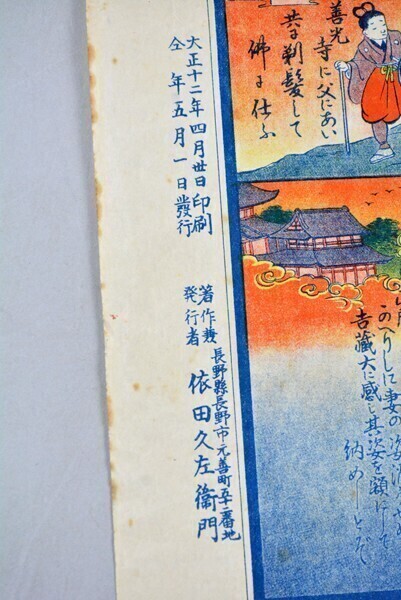 善光
寺に父にあい
共に剃髪して
佛に仕ふ
大正十二年四月卅日印刷
仝年五月一日発行
著作兼
発行者
長野縣長野市元善町五十二番地
依田久左衛門
かへりしに妻の姿
吉藏大に感じ其姿を額にして
納めしとぞ